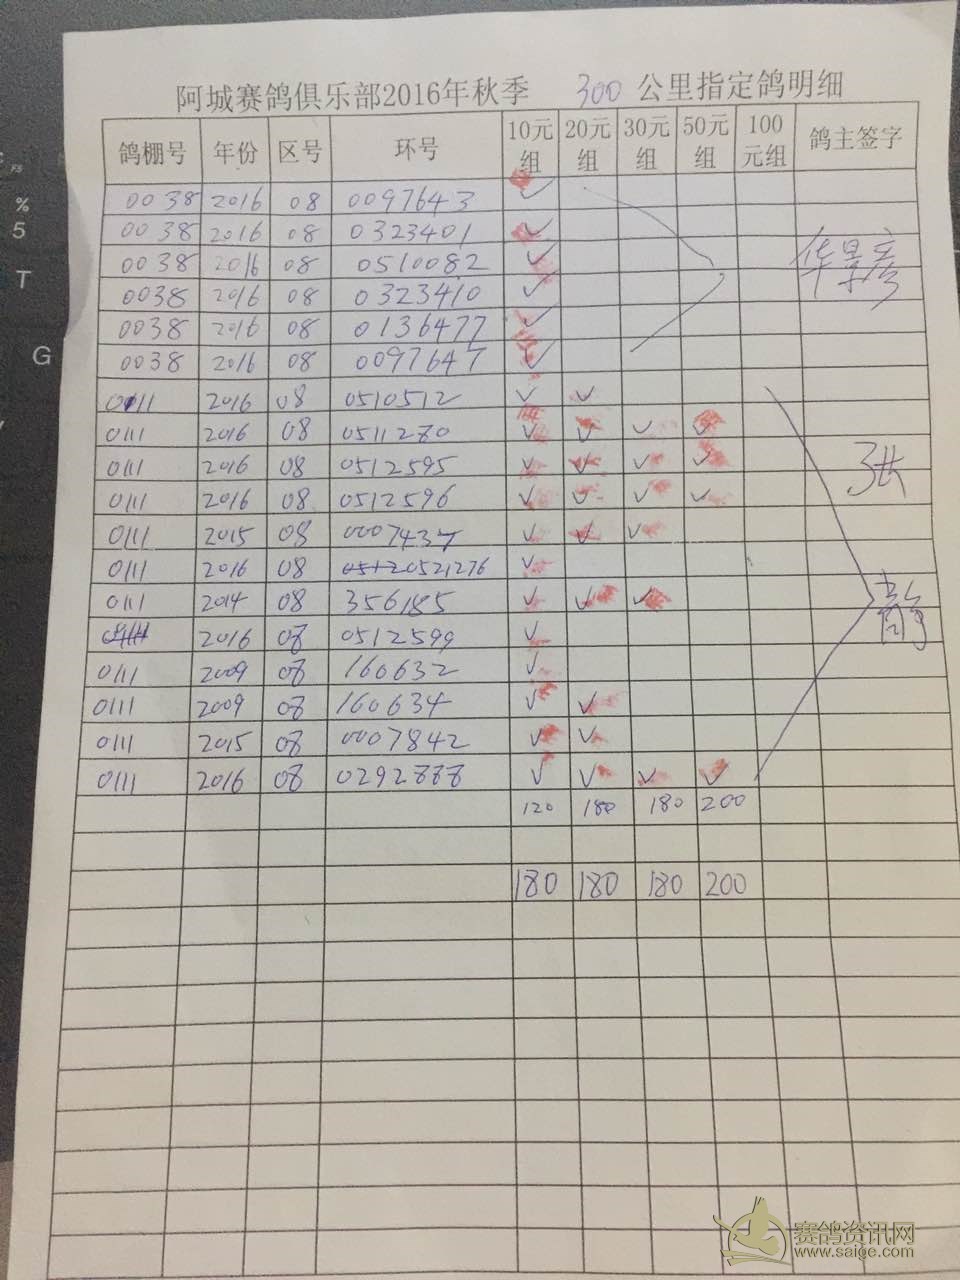 阿城赛鸽俱乐部2016年秋季 300 公里指定鸽明细
鸽棚号 年份 区号 环号 10元组 20元组 30元组 50元组 100元组 鸽主签字
0038 2016 08 0097643 ✓
0038 2016 08 0323401 ✓
0038 2016 08 0510082 ✓
0038 2016 08 0323410 ✓
0038 2016 08 0136477 ✓
0038 2016 08 0097647 ✓
0111 2016 08 0510512 ✓ ✓
0111 2016 08 0511280 ✓ ✓ ✓ ✓
0111 2016 08 0512595 ✓ ✓ ✓ ✓
0111 2016 08 0512596 ✓ ✓ ✓ ✓
0111 2015 08 0007437 ✓ ✓ ✓
0111 2016 08 0521276 ✓
0111 2014 08 356185 ✓ ✓ ✓
2016 08 0512599 ✓
0111 2009 08 160632 ✓
0111 2009 08 160634 ✓ ✓
0111 2015 08 0007842 ✓ ✓
0111 2016 08 0292888 ✓ ✓ ✓ ✓
120 180 180 200
180 180 180 200
% 5
T
G
赛鸽资讯网
www.saige.com